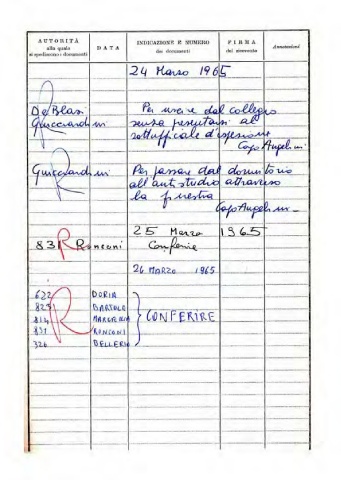 AUTORITÀ
alla quale
si spediscono i documenti
DATA
INDICAZIONE E NUMERO
dei documenti
FIRMA
del ricevente
Annotazioni
24 Marzo 1965
De Blasi
Guicciardini
Per uscire dal collegio
senza presentarsi al
sottufficiale d'ispezione
Capo Angelini
Guicciardini
Per passare dal dormitorio
all'anti studio attraverso
la finestra
Capo Angelini
25 Marzo 1965
831 Ronconi Conferire
26 MARZO 1965
622 DORIA
823 BARTOLE
814
831 RONCONI
326 BELLERIO
CONFERIRE
R
R
R
R